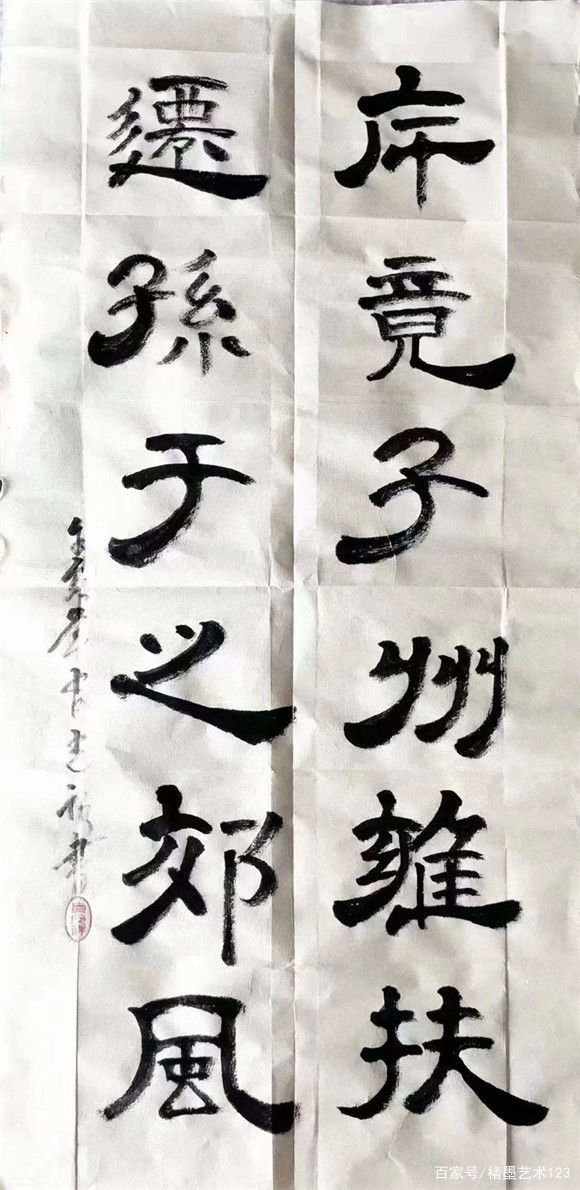 斥竟子州雍扶
遷孫于之郊風
書
百家号/楮墨艺术123